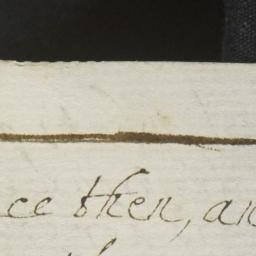 ce then, an